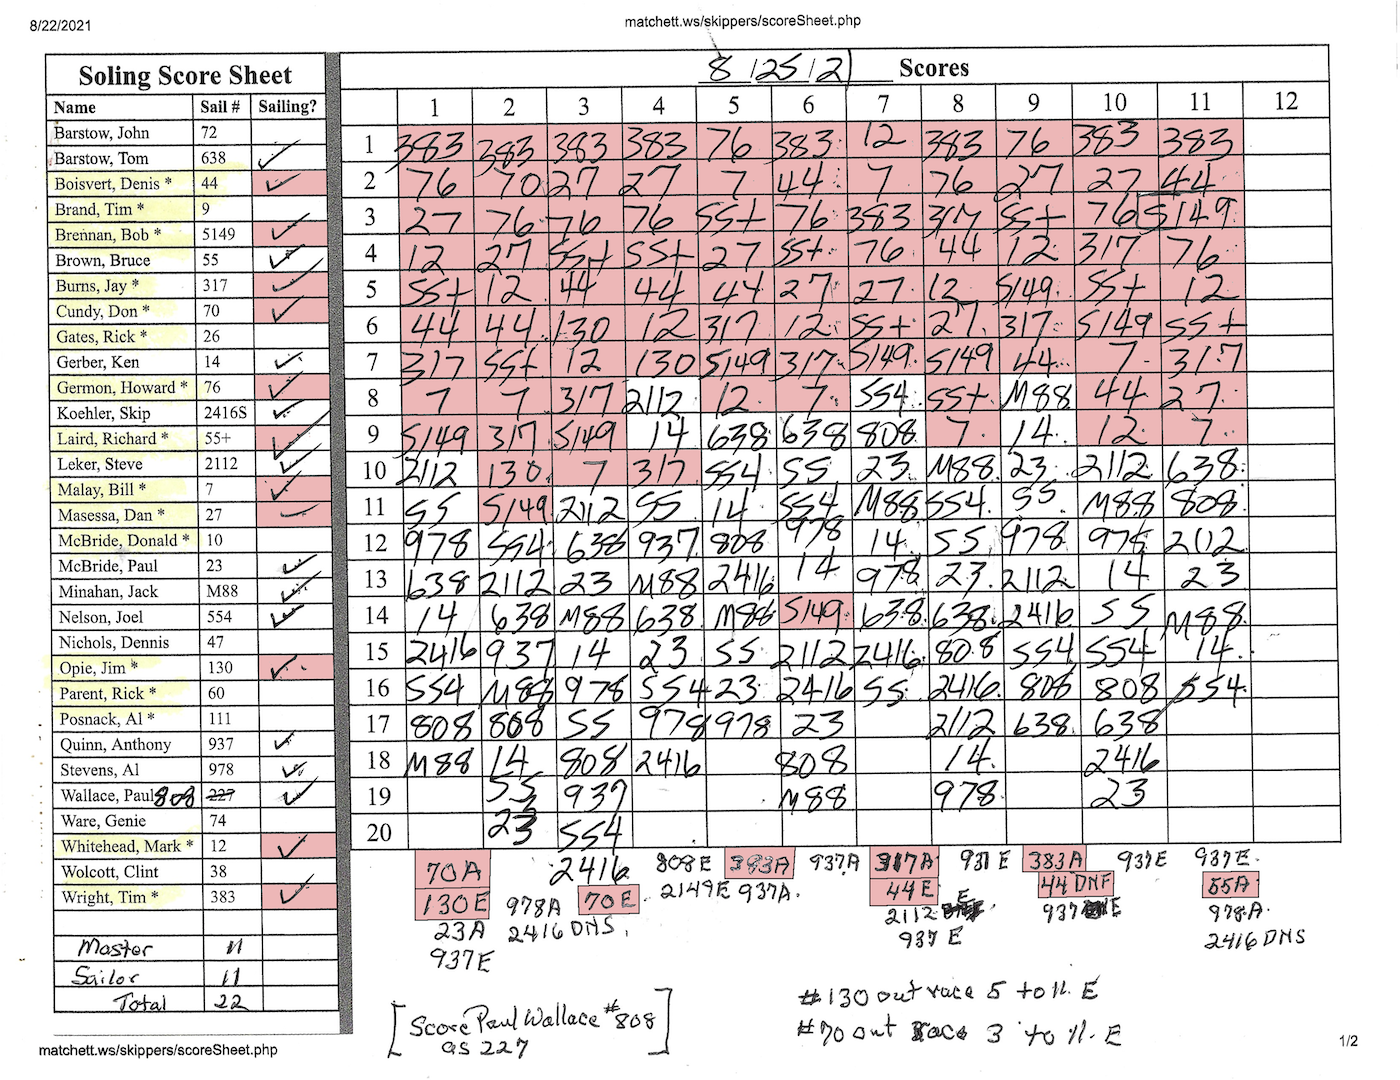 8/22/2021 matchett.ws/skippers/scoreSheet.php
Soling Score Sheet 8/25/21 Scores
Name Sail # Sailing? 1 2 3 4 5 6 7 8 9 10 11 12
Barstow, John 72
Barstow, Tom 638 ✓
Boisvert, Denis * 44 ✓
Brand, Tim * 9
Brennan, Bob * 5149 ✓
Brown, Bruce 55 ✓
Burns, Jay * 317 ✓
Cundy, Don * 70 ✓
Gates, Rick * 26
Gerber, Ken 14 ✓
Germon, Howard * 76 ✓
Koehler, Skip 2416S ✓
Laird, Richard * 55+ ✓
Leker, Steve 2112 ✓
Malay, Bill * 7 ✓
Masessa, Dan * 27 ✓
McBride, Donald * 10
McBride, Paul 23 ✓
Minahan, Jack M88 ✓
Nelson, Joel 554 ✓
Nichols, Dennis 47
Opie, Jim * 130 ✓
Parent, Rick * 60
Posnack, Al * 111
Quinn, Anthony 937 ✓
Stevens, Al 978 ✓
Wallace, Paul 808 227 ✓
Ware, Genie 74
Whitehead, Mark * 12 ✓
Wolcott, Clint 38
Wright, Tim * 383 ✓
Master 11
Sailor 11
Total 22
1 383 383 383 383 76 383 12 383 76 383 383
2 76 70 27 27 7 44 7 76 27 27 44
3 27 76 76 76 55+ 76 383 317 55+ 76 5149
4 12 27 55+ 55+ 27 55+ 76 44 12 317 76
5 55+ 12 44 44 44 27 27 12 5149 55+ 12
6 44 44 130 12 317 12 55+ 27 317 5149 55+
7 317 55+ 12 130 5149 317 5149 5149 44 7 317
8 7 7 317 2112 12 7 554 55+ M88 44 27
9 5149 317 5149 14 638 638 808 7 14 12 7
10 2112 130 7 317 554 55 23 M88 23 2112 638
11 55 5149 2112 55 14 554 M88 554 55 M88 808
12 978 554 638 937 808 978 14 55 978 978 2112
13 638 2112 23 M88 2416 14 978 23 2112 14 23
14 14 638 M88 638 M88 5149 638 638 2416 55 M88
15 2416 937 14 23 55 2112 2416 808 554 554 14
16 554 M88 978 554 23 2416 55 2416 808 808 554
17 808 808 55 978 978 23 2112 638 638
18 M88 14 808 2416 808 14 2416
19 55 937 M88 978 23
20 23 554
70A 2416 808E 383A 937A 317A 937E 383A 937E 937E
130E 978A 70E 2149E 937A 44E 44 DNF 55A
23A 2416 DNS 2112 E 937 E 978A
937E 937 E 2416 DNS
[Score Paul Wallace #808
as 227]
#130 out race 5 to 11. E
#70 out race 3 to 11. E
matchett.ws/skippers/scoreSheet.php 1/2